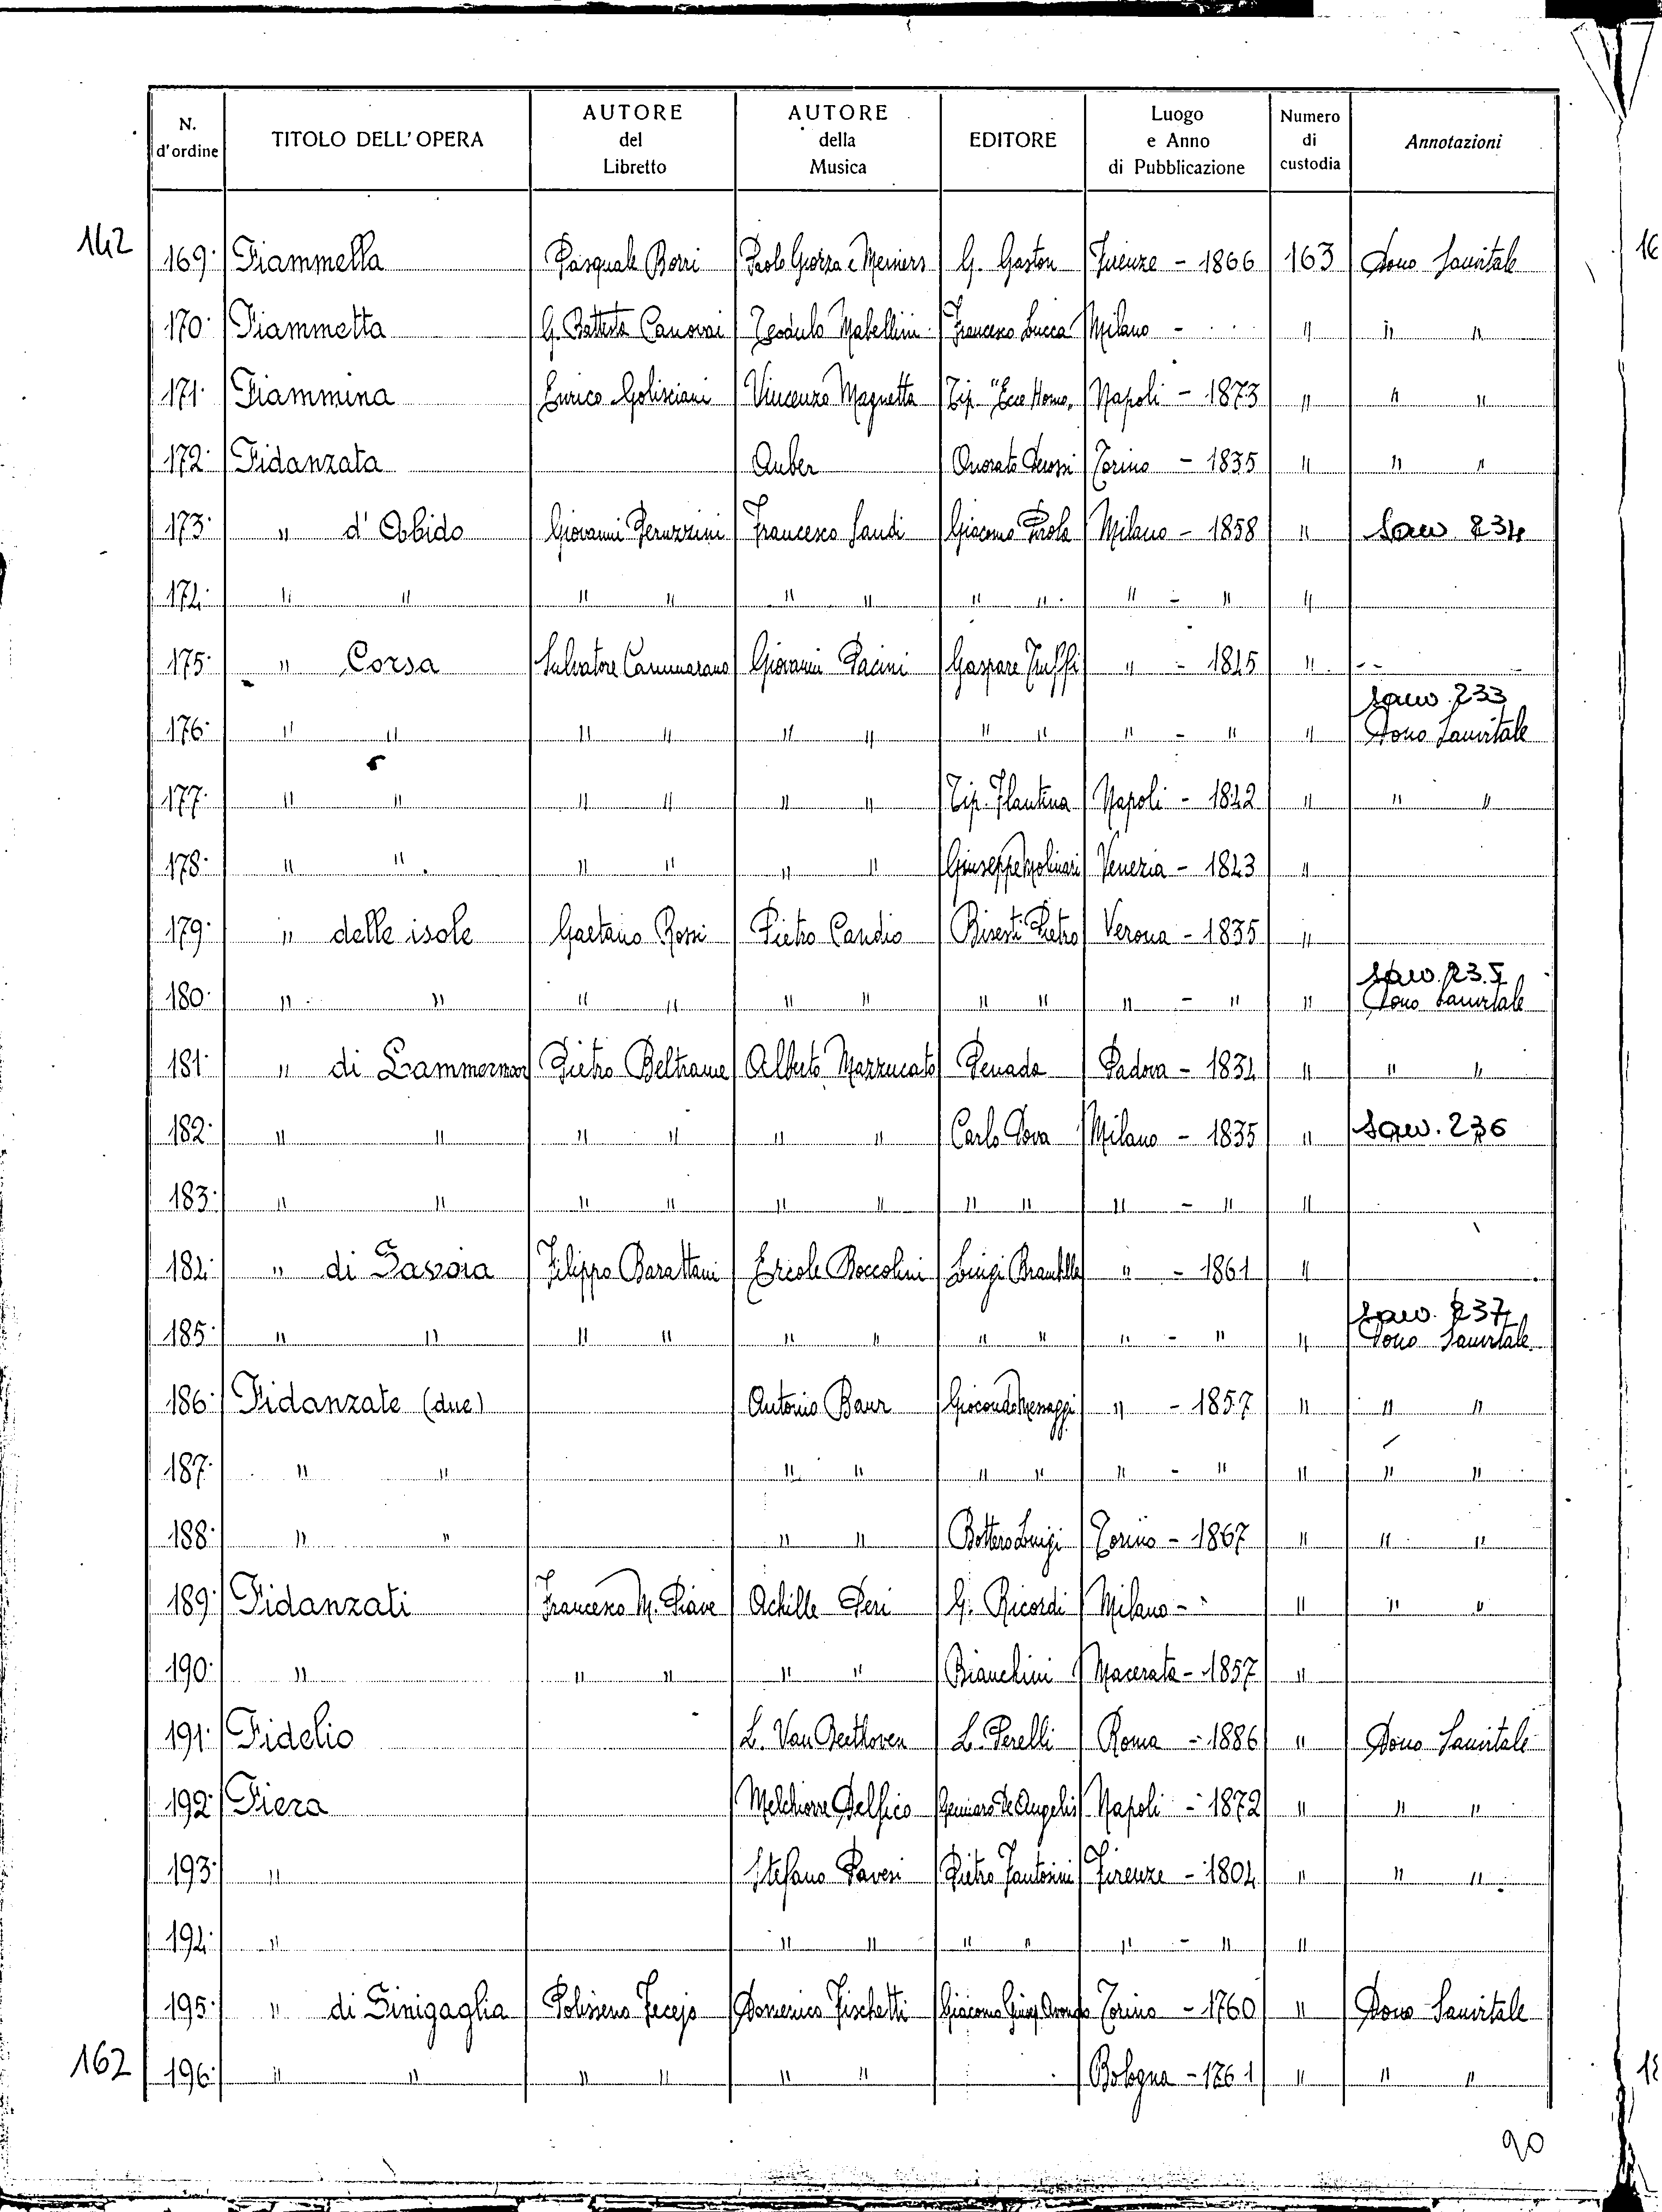 N. d'ordine | TITOLO DELL'OPERA | AUTORE del Libretto | AUTORE della Musica | EDITORE | Luogo e Anno di Pubblicazione | Numero di custodia | Annotazioni
142 169· Fiammella Pasquale Borri Paolo Giorza e Meiners G. Gaston Firenze - 1866 163 Dono Sanvitale
170· Fiammetta G. Battista Canovai Teodulo Mabellini Francesco Lucca Milano - " " "
171· Fiammina Enrico Golisciani Vincenzo Magnetta Tip. "Ecce Homo„ Napoli - 1873 " " "
172· Fidanzata Auber Onorato Derossi Torino - 1835 " " "
173· " d'Abido Giovanni Peruzzini Francesco Sandi Giacomo Pirola Milano - 1858 " Sanv. 234
174· " " " " " " " " " - " "
175· " Corsa Salvatore Cammarano Giovanni Pacini Gaspare Truffi " - 1845 " --
sanv. 233
176· " " " " " " " " " - " " Dono Sanvitale
177· " " " " " " Tip. Flautina Napoli - 1842 " " "
178· " " " " " " Giuseppe Molinari Venezia - 1843 "
179· " delle isole Gaetano Rossi Pietro Candio Bisesti Pietro Verona - 1835 "
sanv. 235
180· " " " " " " " " " - " " Dono Sanvitale
181· " di Lammermoor Pietro Beltrame Alberto Mazzucato Penada Padova - 1834 " " "
182· " " " " " " Carlo Dova Milano - 1835 " Sanv. 236
183· " " " " " " " " " - " "
184· " di Savoia Filippo Barattani Ercole Boccolini Luigi " - 1861 "
sanv. 237
185· " " " " " " " " " - " " Dono Sanvitale
186· Fidanzate (due) Antonio Baur Giocondo Messaggi " - 1857 " " "
187· " " " " " " " - " " " "
188· " " " " Bottero Luigi Torino - 1867 " " "
189· Fidanzati Francesco M. Piave Achille Peri G. Ricordi Milano - " " "
190· " " " " " Bianchini Macerata - 1857 "
191· Fidelio L. Van Beethoven L. Perelli Roma - 1886 " Dono Sanvitale
192· Fiera Melchiorre Delfico Gennaro De Angelis Napoli - 1872 " " "
193· " Stefano Pavesi Pietro Fantosini Firenze - 1804 " " "
194· " " " " " " - " "
195· " di Sinigaglia Polisseno Fecejo Domenico Fischetti Giacomo Torino - 1760 " Dono Sanvitale
162 196· " " " " " " Bologna - 1761 " " "
90